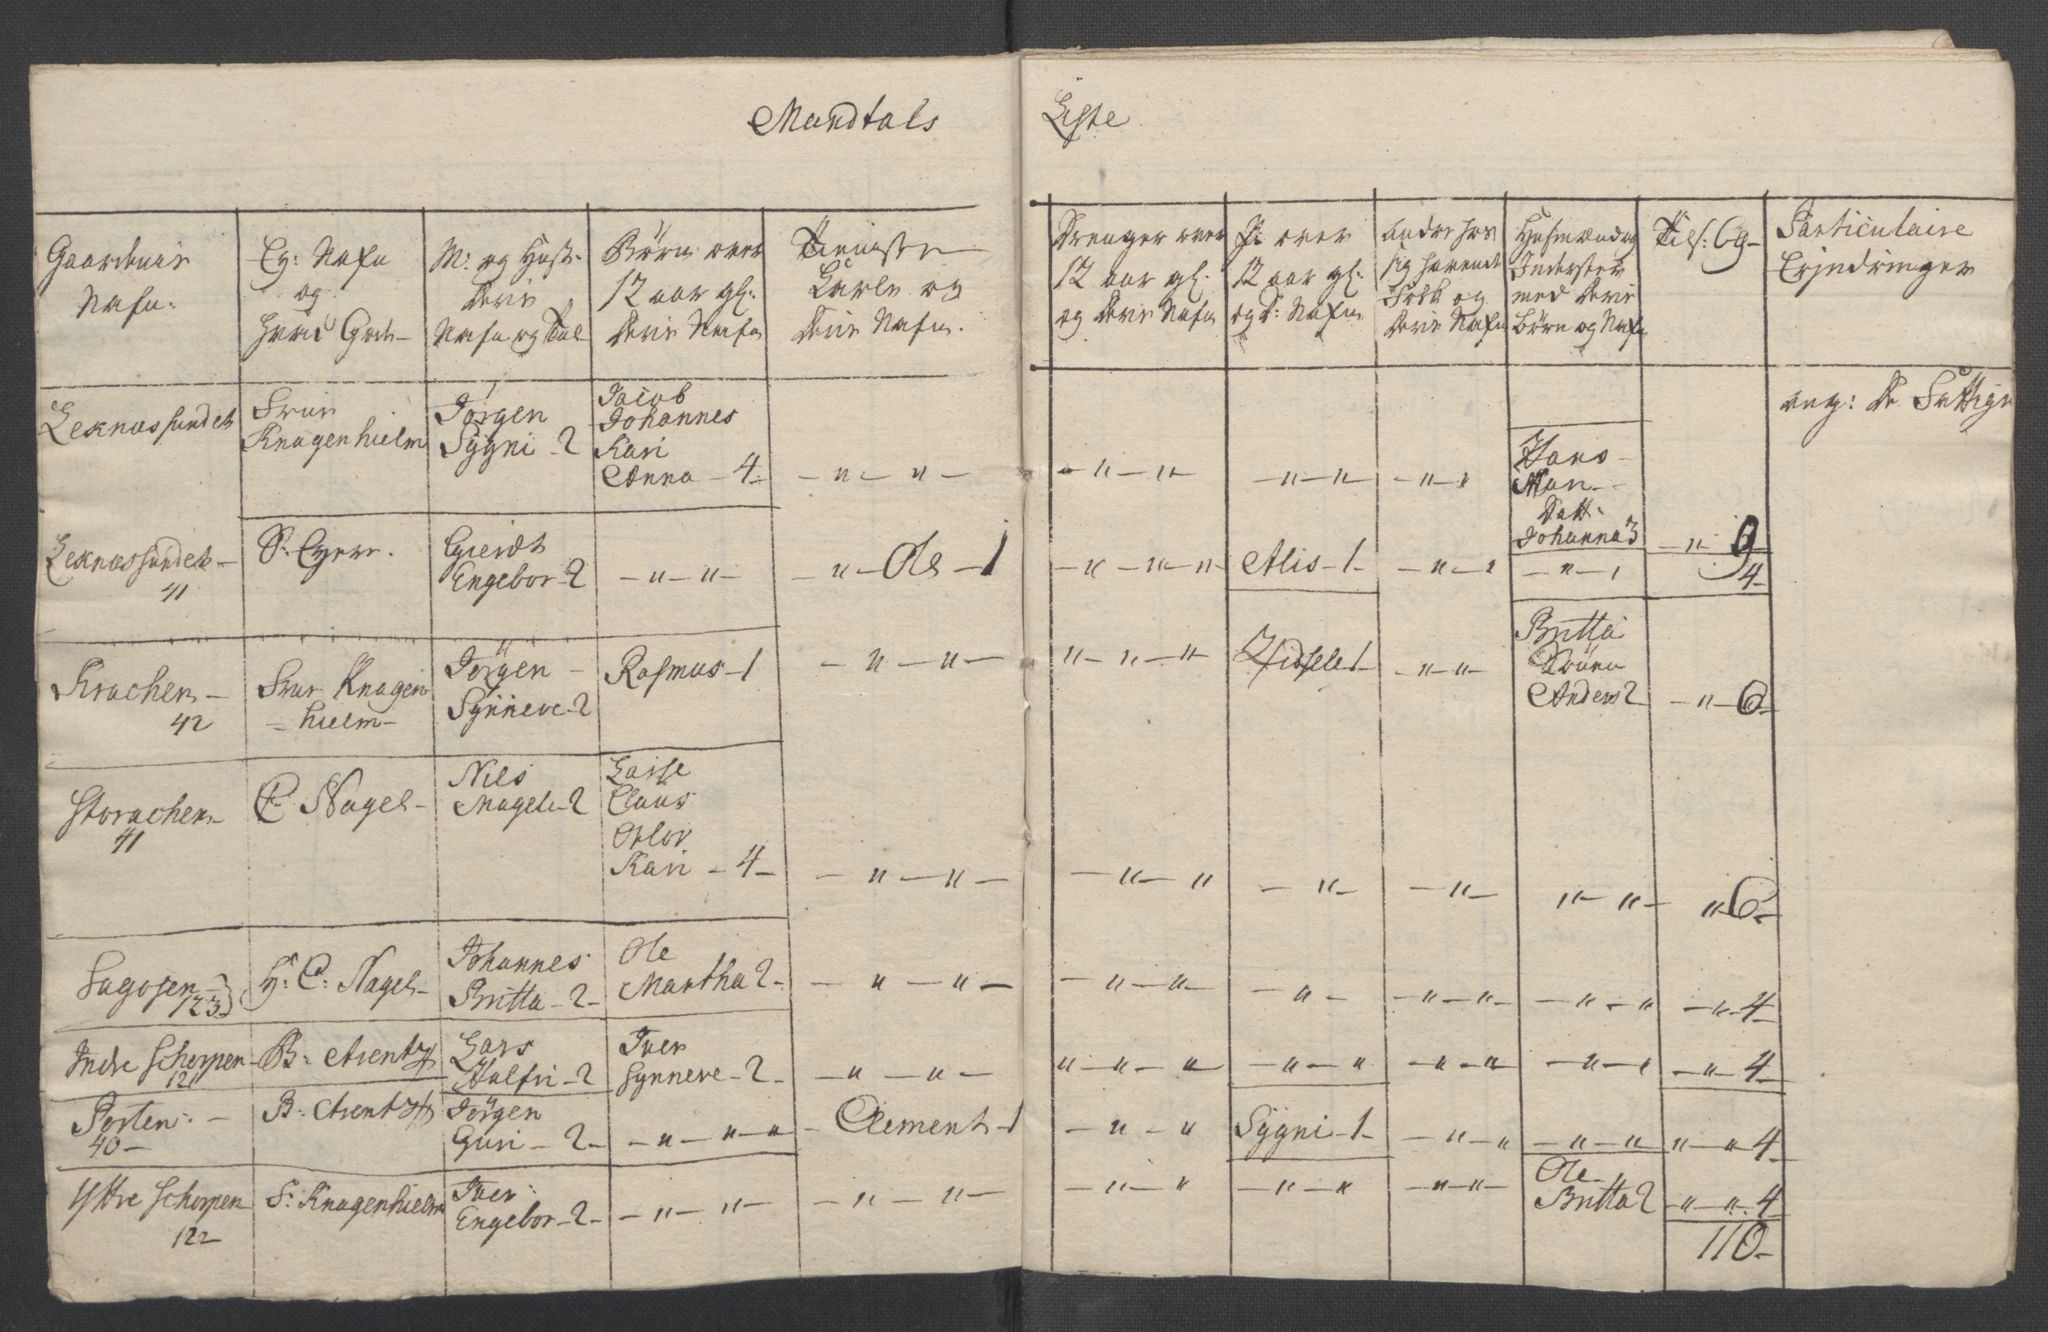 Mandtals Liste
Gaardenis
Nafn.
Ey: Nafn
og
hvad Gods
M: og Hust:
Deris
Nafn og Tal
Børn over
12 aar gl:
Deris Nafn
Tienniste
Karle og
Deris Nafn.
Drenger over
12 aar gl.
og Deris Nafn
P: over
12 aar gl:
og D: Nafn
Andre hos
sig havende
Folk og
Deris Nafn
Husmænd og
Inderster
med Deris
børn og Nafn
Tils:
Particulaire
Erindringer
Leknessundet
Frue
Knagenhielm
Jørgen
Sygni - 2
Jacob
Johannes
Kari
Anna - 4
- " - " -
- " - "
- " - "
- " - "
Hans
Mari
Datt:
Johanna 3
- " - 9
ang: De Fattige
Leknessundet -
41
Sr Eyere.
Gierdt
Engebor - 2
- " - " -
- " - Ole - 1
- " - " - "
Alis - 1 -
- " - "
- " -
4 -
Krachen -
42
Frue Knagen
- hielm -
Jørgen -
Synneve - 2
Rasmus - 1
- " - " -
" - " - "
Zidsele 1 -
- " - "
Britta
Anders 2
- " - 6 -
Storachen -
41
C: Nagel -
Nils
Magele - 2
Lasse
Claus
Kari - 4 -
- " - " -
- " - "
- " -
- " -
" - " -
" - 6 -
Sagosen
123
H: C: Nagel -
Johannes
Britta - 2 -
Ole
Martha 2 -
- " - " -
- " - " -
- " -
- " - " -
- " - "
- " - 4 -
Indre Schorpen
121
B: Arentz
Lars
Iver
Synneve - 2 -
- " - " -
" - " - "
- " - "
- " - "
- " -
- " - 4 -
Porten -
40 -
B: Arentz
Jørgen
Guri - 2 -
- " - " - "
- Clement - 1
- " - "
Sygni - 1 -
- " - "
- " - "
" - " 4
Yttre Schorpen
122
F: Knagenhielm
Iver
Engebor - 2 -
- " - " -
- " - " -
- " - "
- " - "
- " - " -
Ole
Britta 2
- " - " 4
110 -